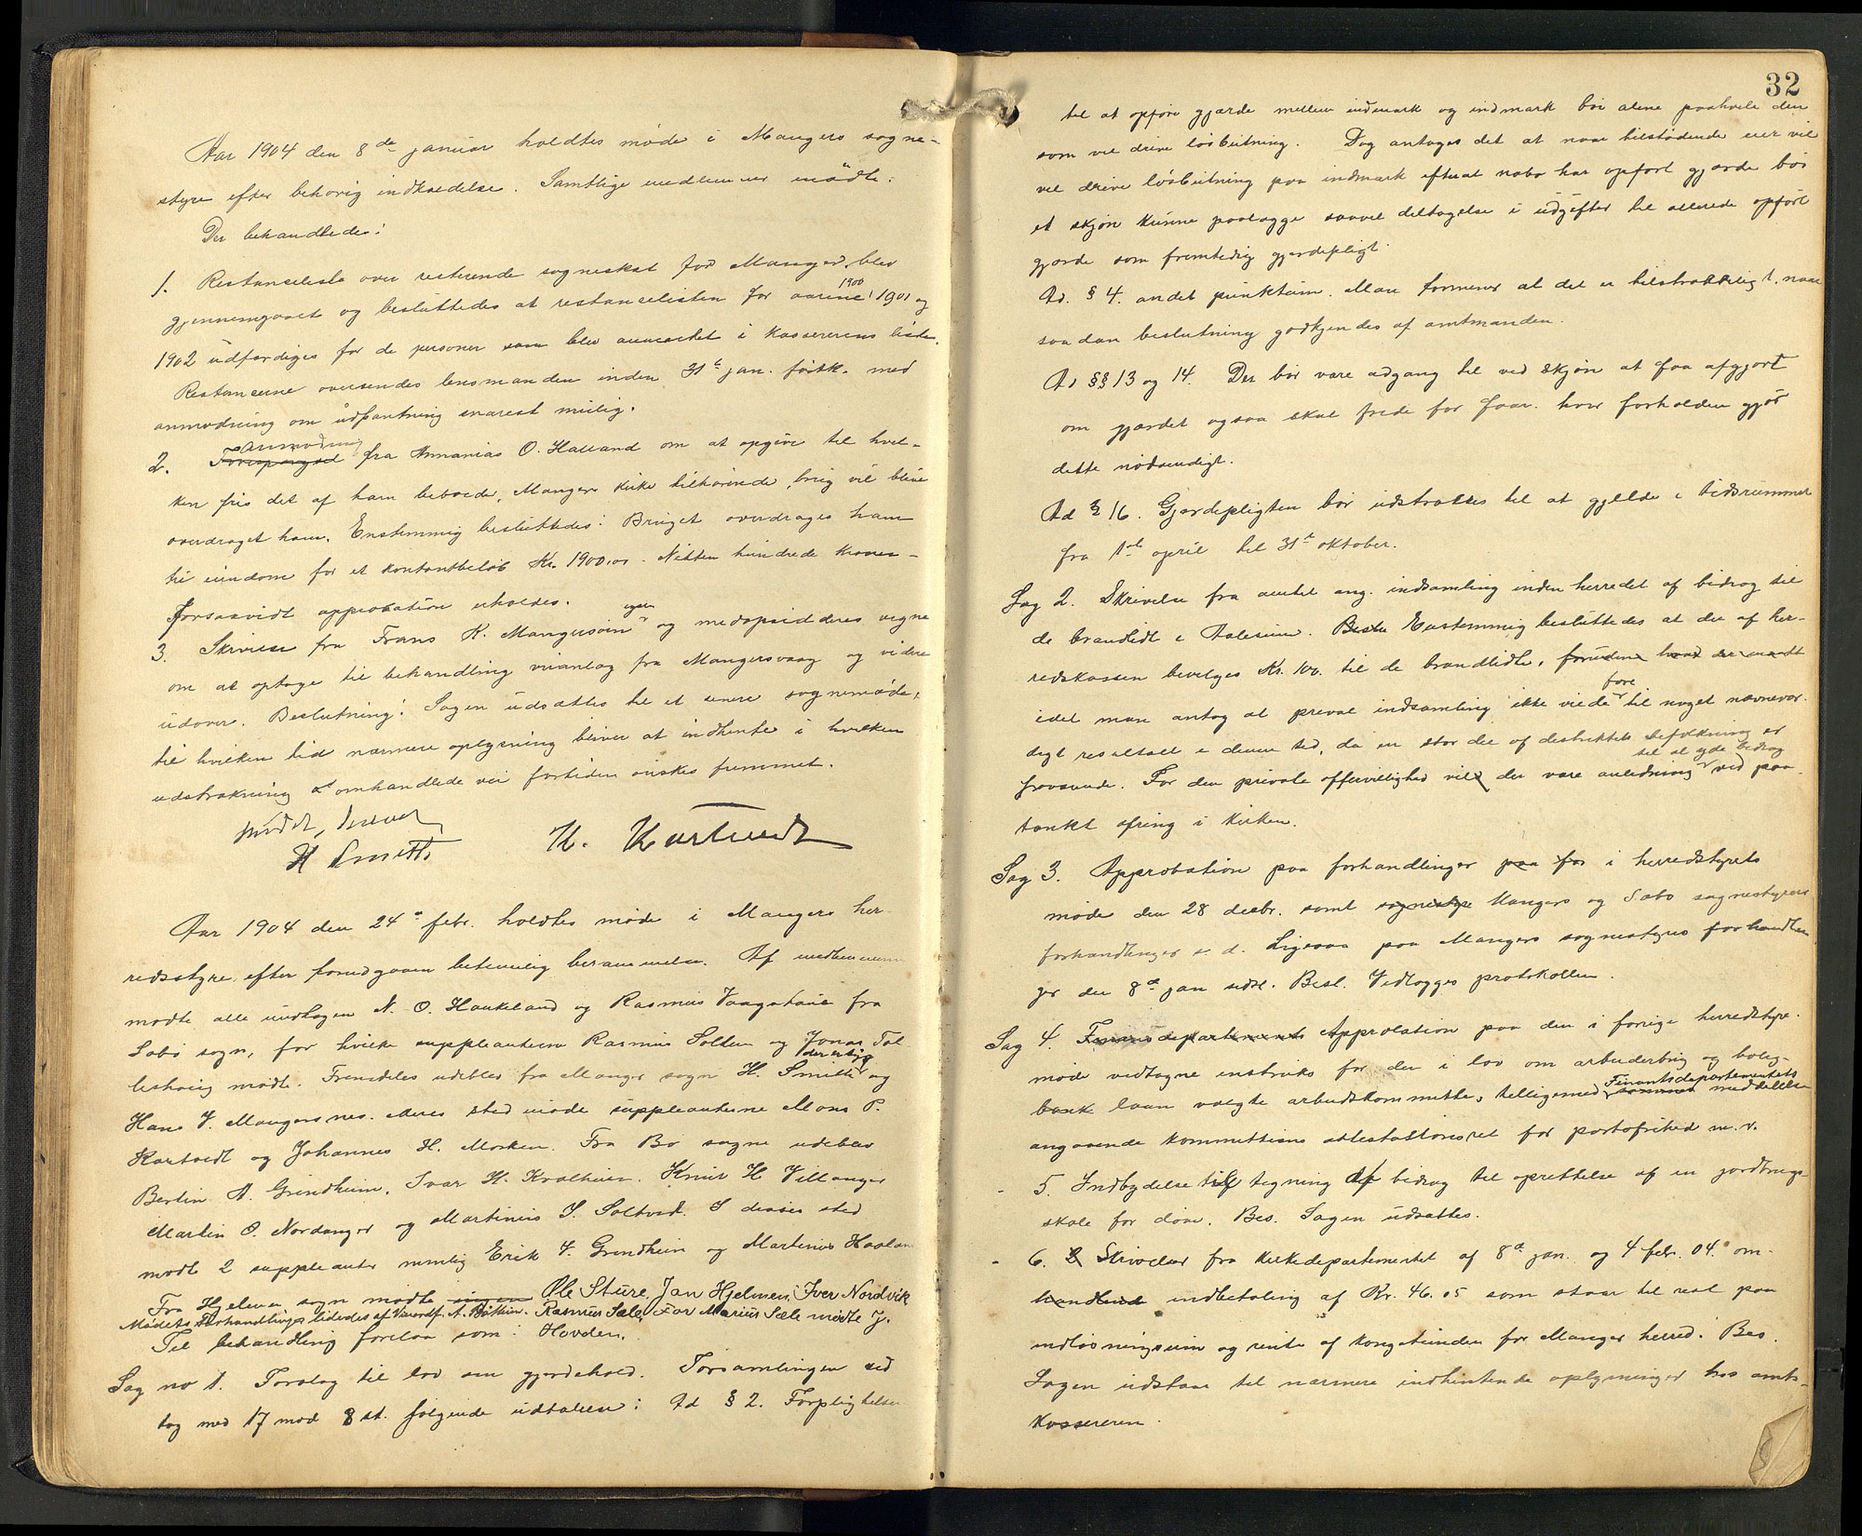 Aar 1904 den 8de januar holdtes møde i Mangers sogne-
styre efter behørig indkaldelse. Samtlige medlemmer mødte.
Der behandledes:
1. Restanceliste over resterende sogneskat for Manger, blev
gjennemgaaet og besluttedes at restancelisten for aarene 1900 1901 og
1902 udfærdiges for de personer som blev anmærket i kassererens liste.
Restancerne oversendes lensmanden inden 31te jan. førstk. med
anmodning om udpantning snarest mulig.
2. Forespørgsel Anmodning fra Annanias O. Halland om at opgive til hvil-
ken pris det af ham beboede, Mangers kirke tilhørende, brug vil blive
overdraget ham. Enstemmig besluttedes: Bruget overdrages ham
til eiendom for et kontantbeløb Kr. 1900,00 - Nitten hundrede Kroner -
forsaavidt approbation erholdes.
3. Skrivelse fra Frans K. Mangersnes egen og medopsidderes vegne
om at optage til behandling veianlæg fra Mangersvaag og videre
udover. Beslutning: Sagen udsættes til et senere sognemøde,
til hvilken tid nærmere oplysning bliver at indhente i hvilken
udstrækning omhandlede vei fortiden ønskes fremmet.
H Smith K. Kartvedt
Aar 1904 den 24de febr. holdtes møde i Mangers her-
redsstyre efter forudgaaen betimelig berammelse. Af medlemmerne
mødte alle undtagen N. O. Haukeland og Rasmus Vaagstane fra
Sæbø sogn, for hvilke suppleanterne Rasmus Soltun og Jonas Tol
leshaug mødte. Fremdeles udeblev fra Manger sogn H. Smith og
Hans V. Mangersnes. deres sted møde suppleanterne Mons P.
Kartvedt og Johannes H. Morken. Fra Bø sogne udeblev
Bertin A. Grindheim, Ivar H. Kvalheim. Knut H Villanger
Martin O. Nordanger og Martinus S. Soltvedt. I disses sted
mødt 2 suppleanter nemlig Erik V. Grindheim og Martinus Haaland
Fra Hjelmen sogn mødte ingen Ole Sture, Jan Hjelmen, Iver Nordvik
Mødets forhandlinger lededes af Varordf. A. Rasmus Sæle, For Marius Sæle mødte J.
Til behandling forelaa som: Hovden.
Sag no 1. Forslag til lov om gjerdehold. Forsamlingen ved
tog med 17 mod 8 st. følgende udtalelse: Ad § 2. Forpligtelsen
32
til at opføre gjærde mellem indmark og indmark bør alene paahvile den
som vil drive løsbeitning. Dog antages det at naar tilstødende eier vil
vil drive løsbeitning paa indmark efterat nabo har opført gjærde bør
et skjøn kunne paalægge saavel deltagelse i udgifter til allerede opført
gjærde som fremtidig gjerdepligt.
Ad. § 4. andet punktum. Man formener at det er tilstrækkeligt, naar
saadan beslutning godkjendes af amtmanden.
Ad §§ 13 og 14. Der bør være adgang til ved skjøn at faa afgjort
om gjærdet ogsaa skal frede for faar. hvor forholden gjør
dette nødvendigt.
Ad § 16. Gjerdepligten bør udstrækkes til at gjelde i tidsrummet
fra 1ste april til 31te oktober.
Sag 2. Skrivelse fra amtet ang. indsamling inden herredet af bidrag til
de brandlidte i Aalesund. Beslu Enstemmig besluttedes at der af her-
redskassen bevilges Kr. 100. til de brandlidte, foruden hvad
idet man antog at privat indsamling ikke vilde føre til noget nævnevær-
digt resultat i denne tid, da en stor del af distriktets befolkning er
fraværende. For den private offervillighed vil der være anledning til at yde bidrag ved paa-
tænkt ofring i kirken.
Sag 3. Approbation paa forhandlinger paa for i herredstyrets
møde den 28 decbr. samt sognestyre Mangers og Sæbø sognestyrers
forhandlinger s. d. Ligesaa paa Mangers sognestyres forhandlin
ger den 8de jan sidst. Besl. Vedlægges protokollen.
Sag 4. Finansdepartements Approbation paa den i forrige herredstyre-
møde vedtagne instruks for den i lov om arbeiderbrug og bolig-
bank laan valgte arbeidskommitte, tilligemed Finantsdepartementets meddelelse
angaaende kommitteens attestationsret for portofrihed m. v.
- 5. Indbydelse til tegning af bidrag til oprettelse af en jordbrugs-
skole for døve. Bes. Sagen udsættes.
- 6. Skrivelser fra kirkedepartementet af 8de jan. og 4 febr. 04. om
indbetaling af Kr. 46.05 som staar til rest paa
indløsningssum og rente af kongetienden for Manger herred. Bes.
Sagen udstaar til nærmere indhentende oplysninger hos amts-
kassereren.